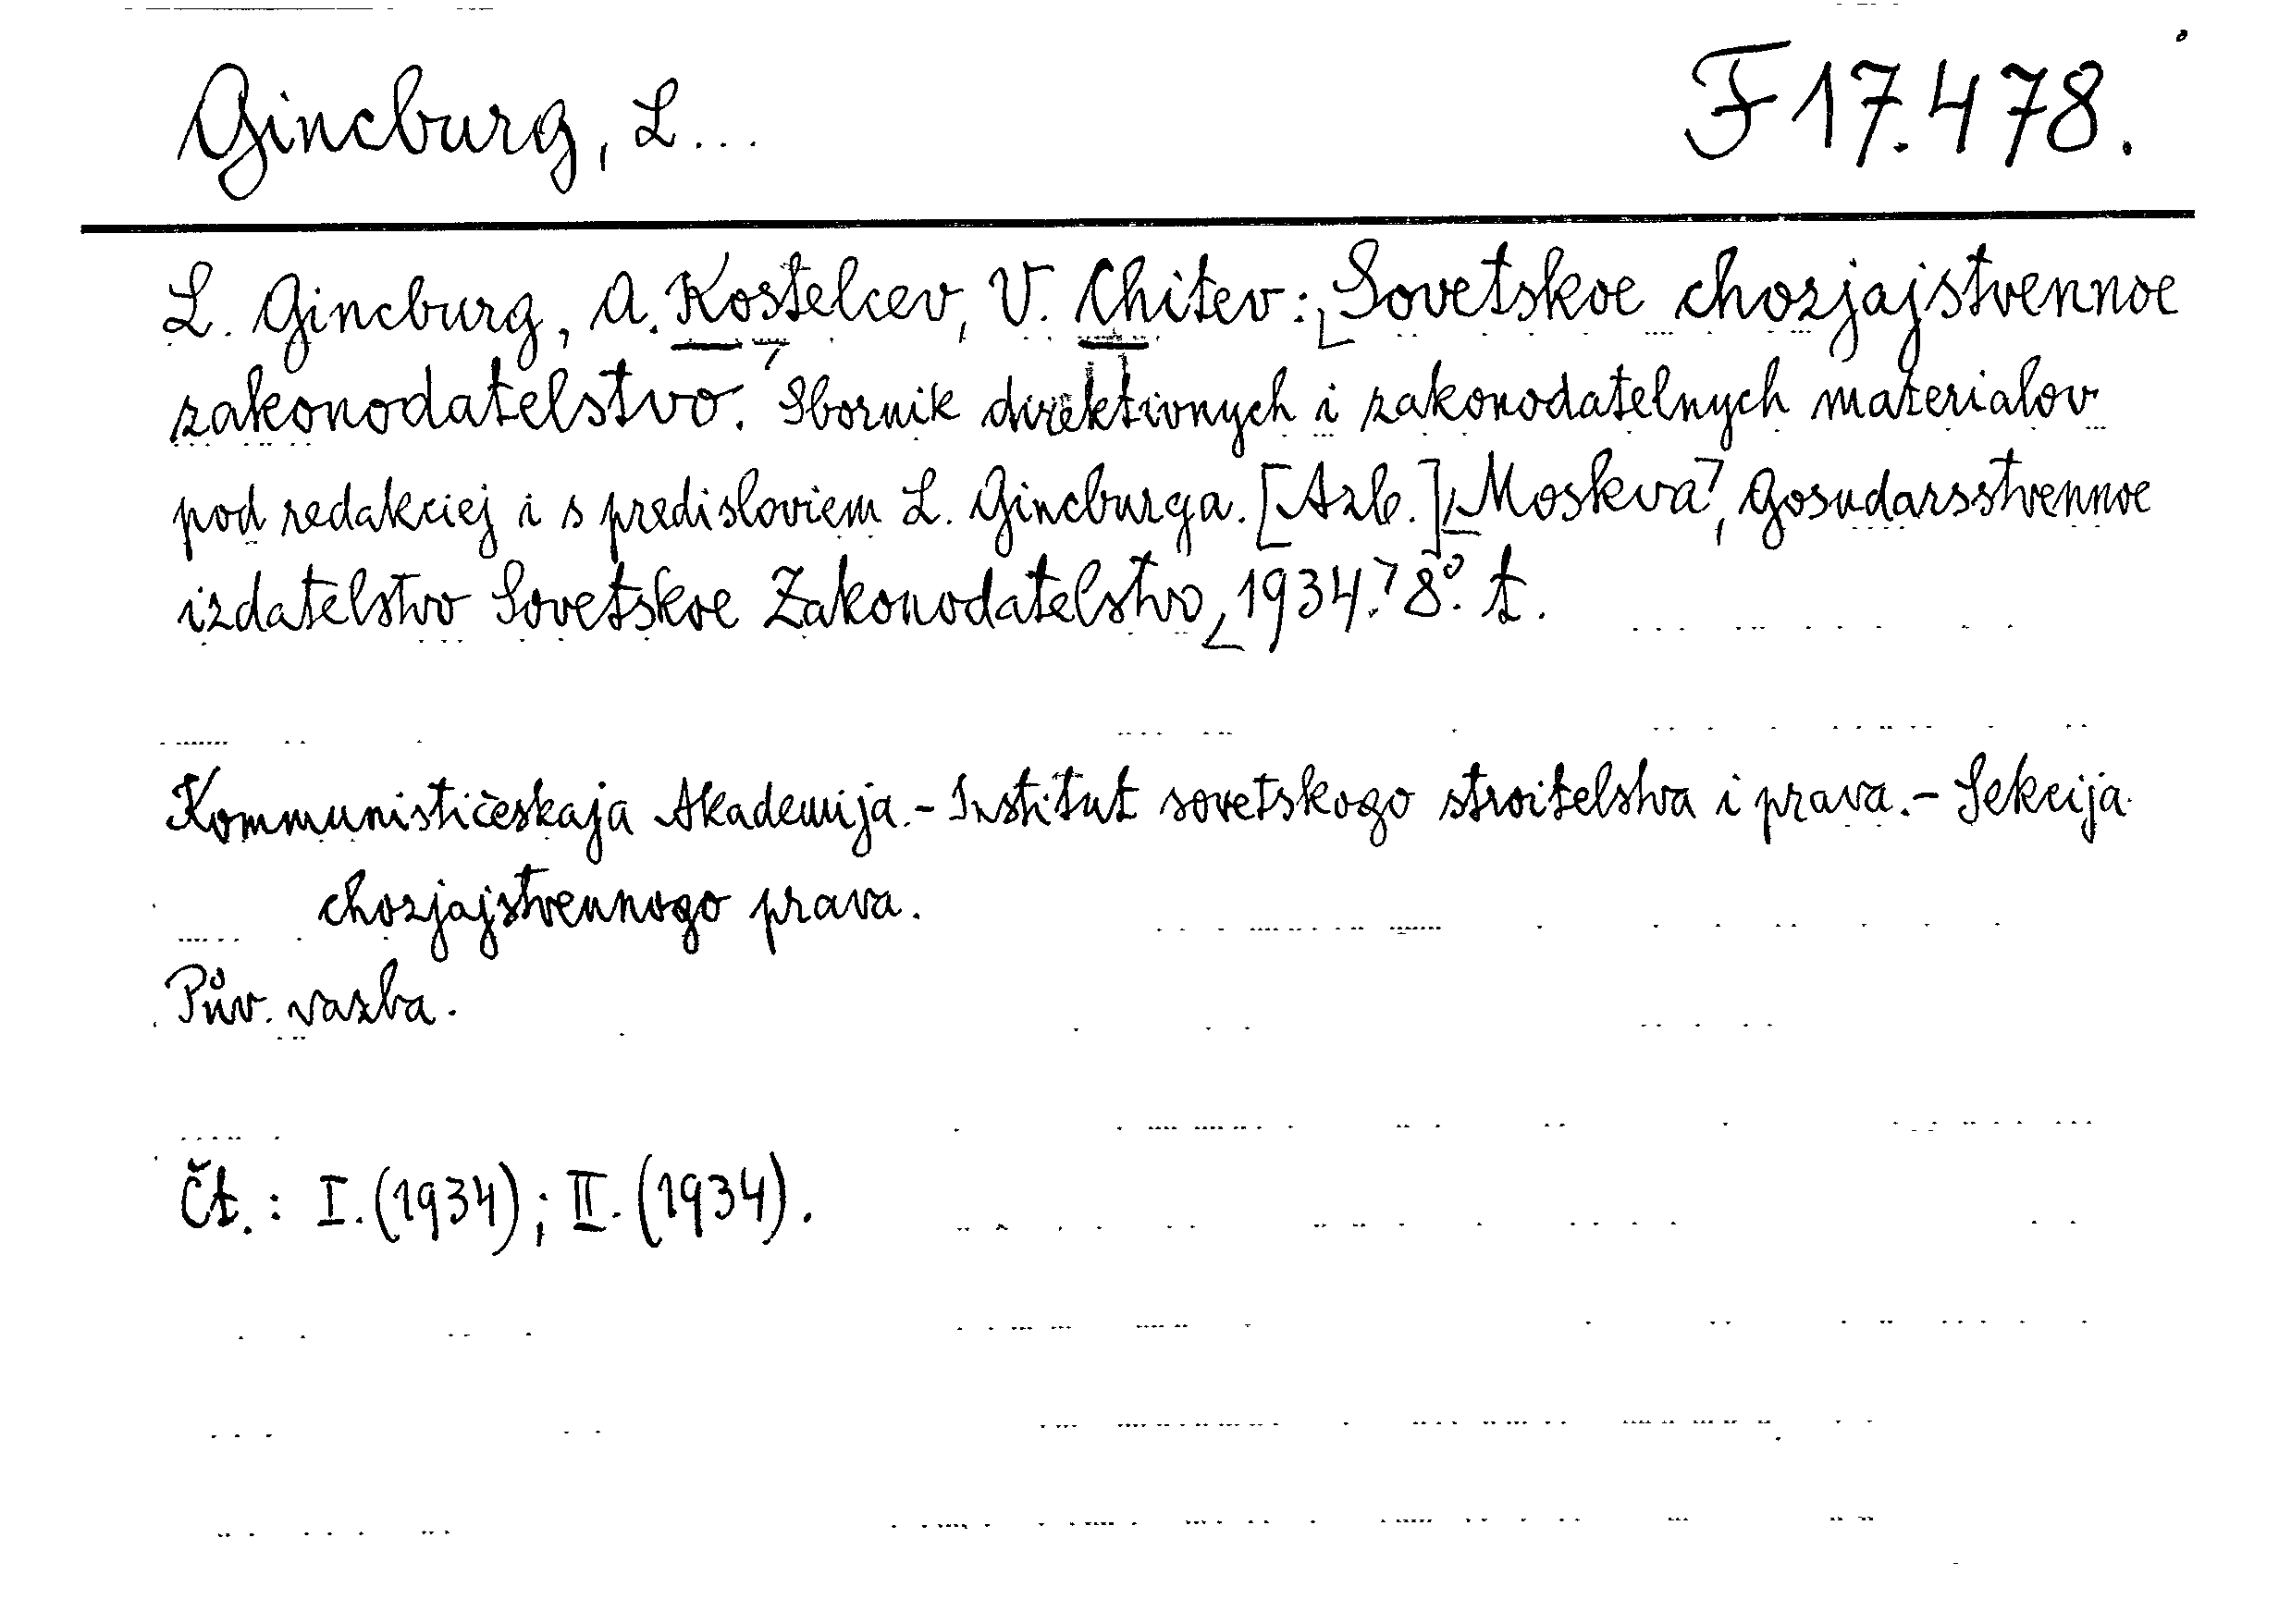 Gincburg, L... F 17.478.
L. Gincburg, A. Kostelcev, V. Chitev: Sovetskoe chozjajstvennoe
zakonodatelstvo. Sbornik direktivnych i zakonodatelnych materialov
pod redakciej i s predisloviem L. Gincburga. [Azb.] Moskva, Gosudarsstvennoe
izdatelstvo Sovetskoe Zakonodatelstvo, 1934. 8°. t.
Kommunističeskaja Akademija. - Institut sovetskogo stroitelstva i prava. - Sekcija
chozjajstvennogo prava.
Pův. vazba.
Čt.: I. (1934); II. (1934).